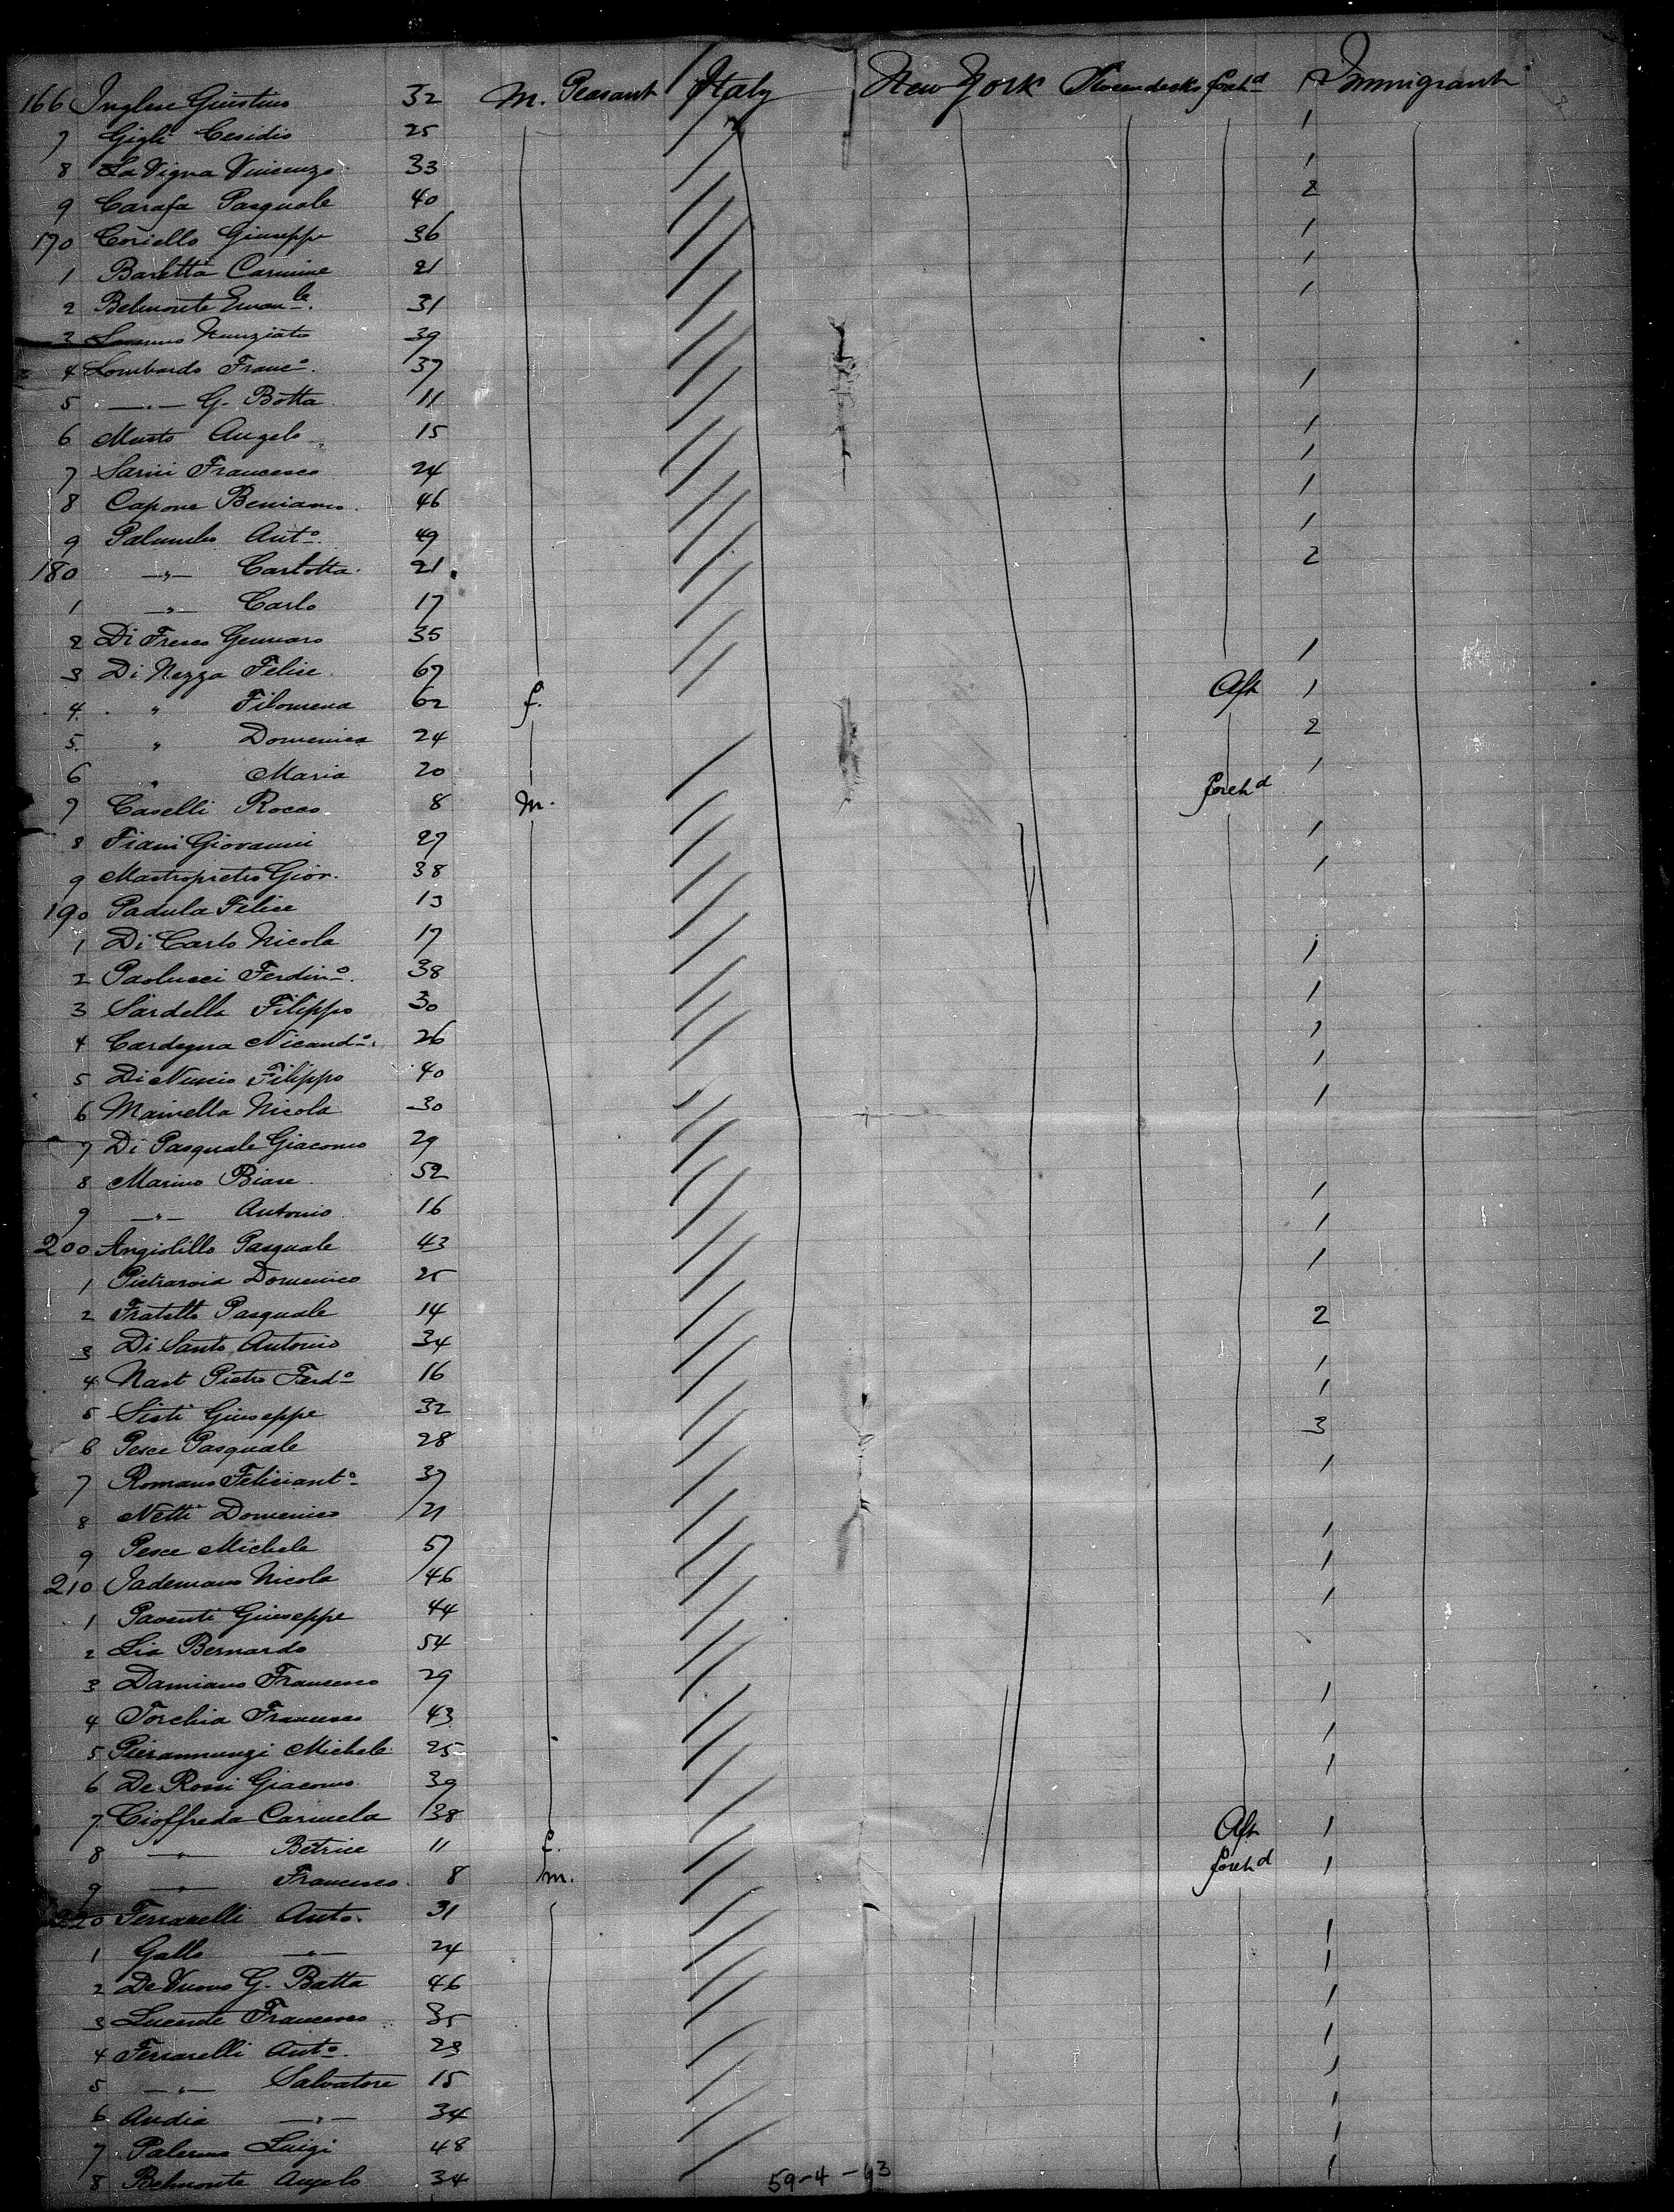 166 Inglese Giustino 32 M. Peasant Italy New York Tweendecks foreh^d 1 Immigrant
7 Gigli Cesidio 25 1
8 La Vigna Vincenzo 33 1
9 Carafa Pasquale 40 2
170 Coriello Giuseppe 36 1
1 Barletta Carmine 21 1
2 Belmonte Eman^le. 31 1
3 Nunziato 39
4 Lombardo Franc^o. 37 1
5 —"— G. Botta 11
6 Musto Angelo 15 1
7 Sarni Francesco 24 1
8 Capone Beniamo. 46 1
9 Palumbo Ant^o. 49 1
180 —"— Carlotta. 21 2
1 —"— Carlo 17
2 Di Fresco Gennaro 35 1
3 Di Nezza Felice 67
4. " Filomena 62 f. Aft 1
5. " Domenica 24 2
6 " Maria 20 1
7 Caselli Rocco 8 m. foreh^d
8 Tiani Giovanni 27 1
9 Mastropietro Giov. 38 1
190 Padula Felice 13
1 Di Carlo Nicola 17 1
2 Paolucci Ferdin^o. 38
3 Sardella Filippo 30 1
4 Cardegna Nicand^o. 26 1
5 Di Nunio Filippo 40 1
6 Mainella Nicola 30 1
7 Di Pasquale Giacomo 29
8 Marino Biase 52 1
9 —"— Antonio 16 1
200 Angiolillo Pasquale 43 1
1 Pietraroia Domenico 25
2 Fratelli Pasquale 14 2
3 Di Santo Antonio 34
4 Nast Pietro Ferd^o 16 1
5 Sisti Giuseppe 32 1
6 Pesce Pasquale 28 3
7 Romano Feliciant^o 37 1
8 Netti Domenico 21
9 Pesce Michele 57 1
210 Jademaro Nicola 46 1
1 Paventi Giuseppe 44 1
2 Lia Bernardo 54
3 Damiano Francesco 29 1
4 Torchia Francesco 43 1
5 Pierannunzi Michele 25
6 De Rossi Giacomo 39 1
7 Cioffreda Carmela 38 Aft 1
8 —"— Betrice 11 f. foreh^d 1
9 —"— Francesco. 8 m.
220 Ferrarelli Anto. 31 1
1 Gallo —"— 24 1
2 De Vuono G. Batta 46 1
3 Lucente Francesco 35 1
4 Ferrarelli Ant^o. 23 1
5 —"— Salvatore 15
6 Audia —"— 34 1
7 Palermo Luigi 48 1
8 Belmonte Angelo 34 1
59-4-63